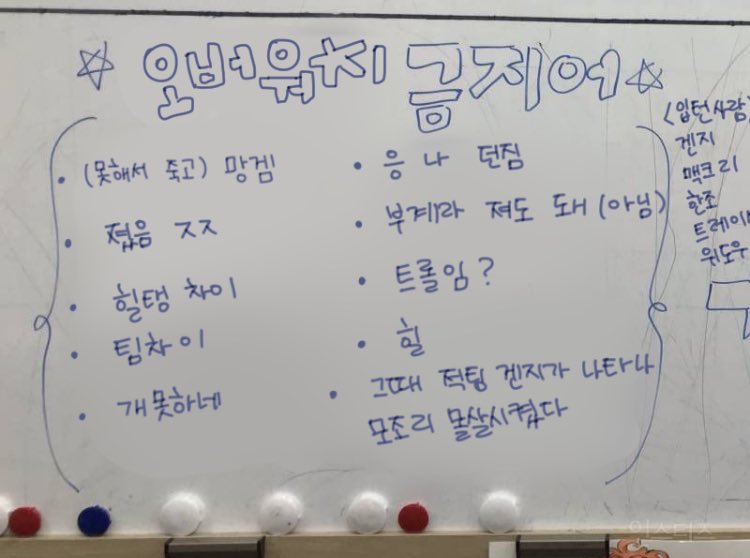 ☆ 오버워치 금지어 ☆
• (못해서 죽고) 망겜
• 젔음 ㅈㅈ
• 힐탱 차이
• 팀차이
• 개못하네
• 응 나 던짐
• 부계라 져도 돼 (아님)
• 트롤임?
• 힐
• 그때 적팀 겐지가 나타나
모조리 몰살시켰다
<입턴사람>
겐지
맥크리
한조
트레이
위도우